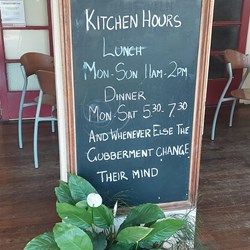 KITCHEN HOURS
LUNCH
MON-SUN 11AM-2PM
DINNER
MON-SAT 5.30-7.30
AND WHENEVER ELSE THE
GUBBERMENT CHANGE
THEIR MIND